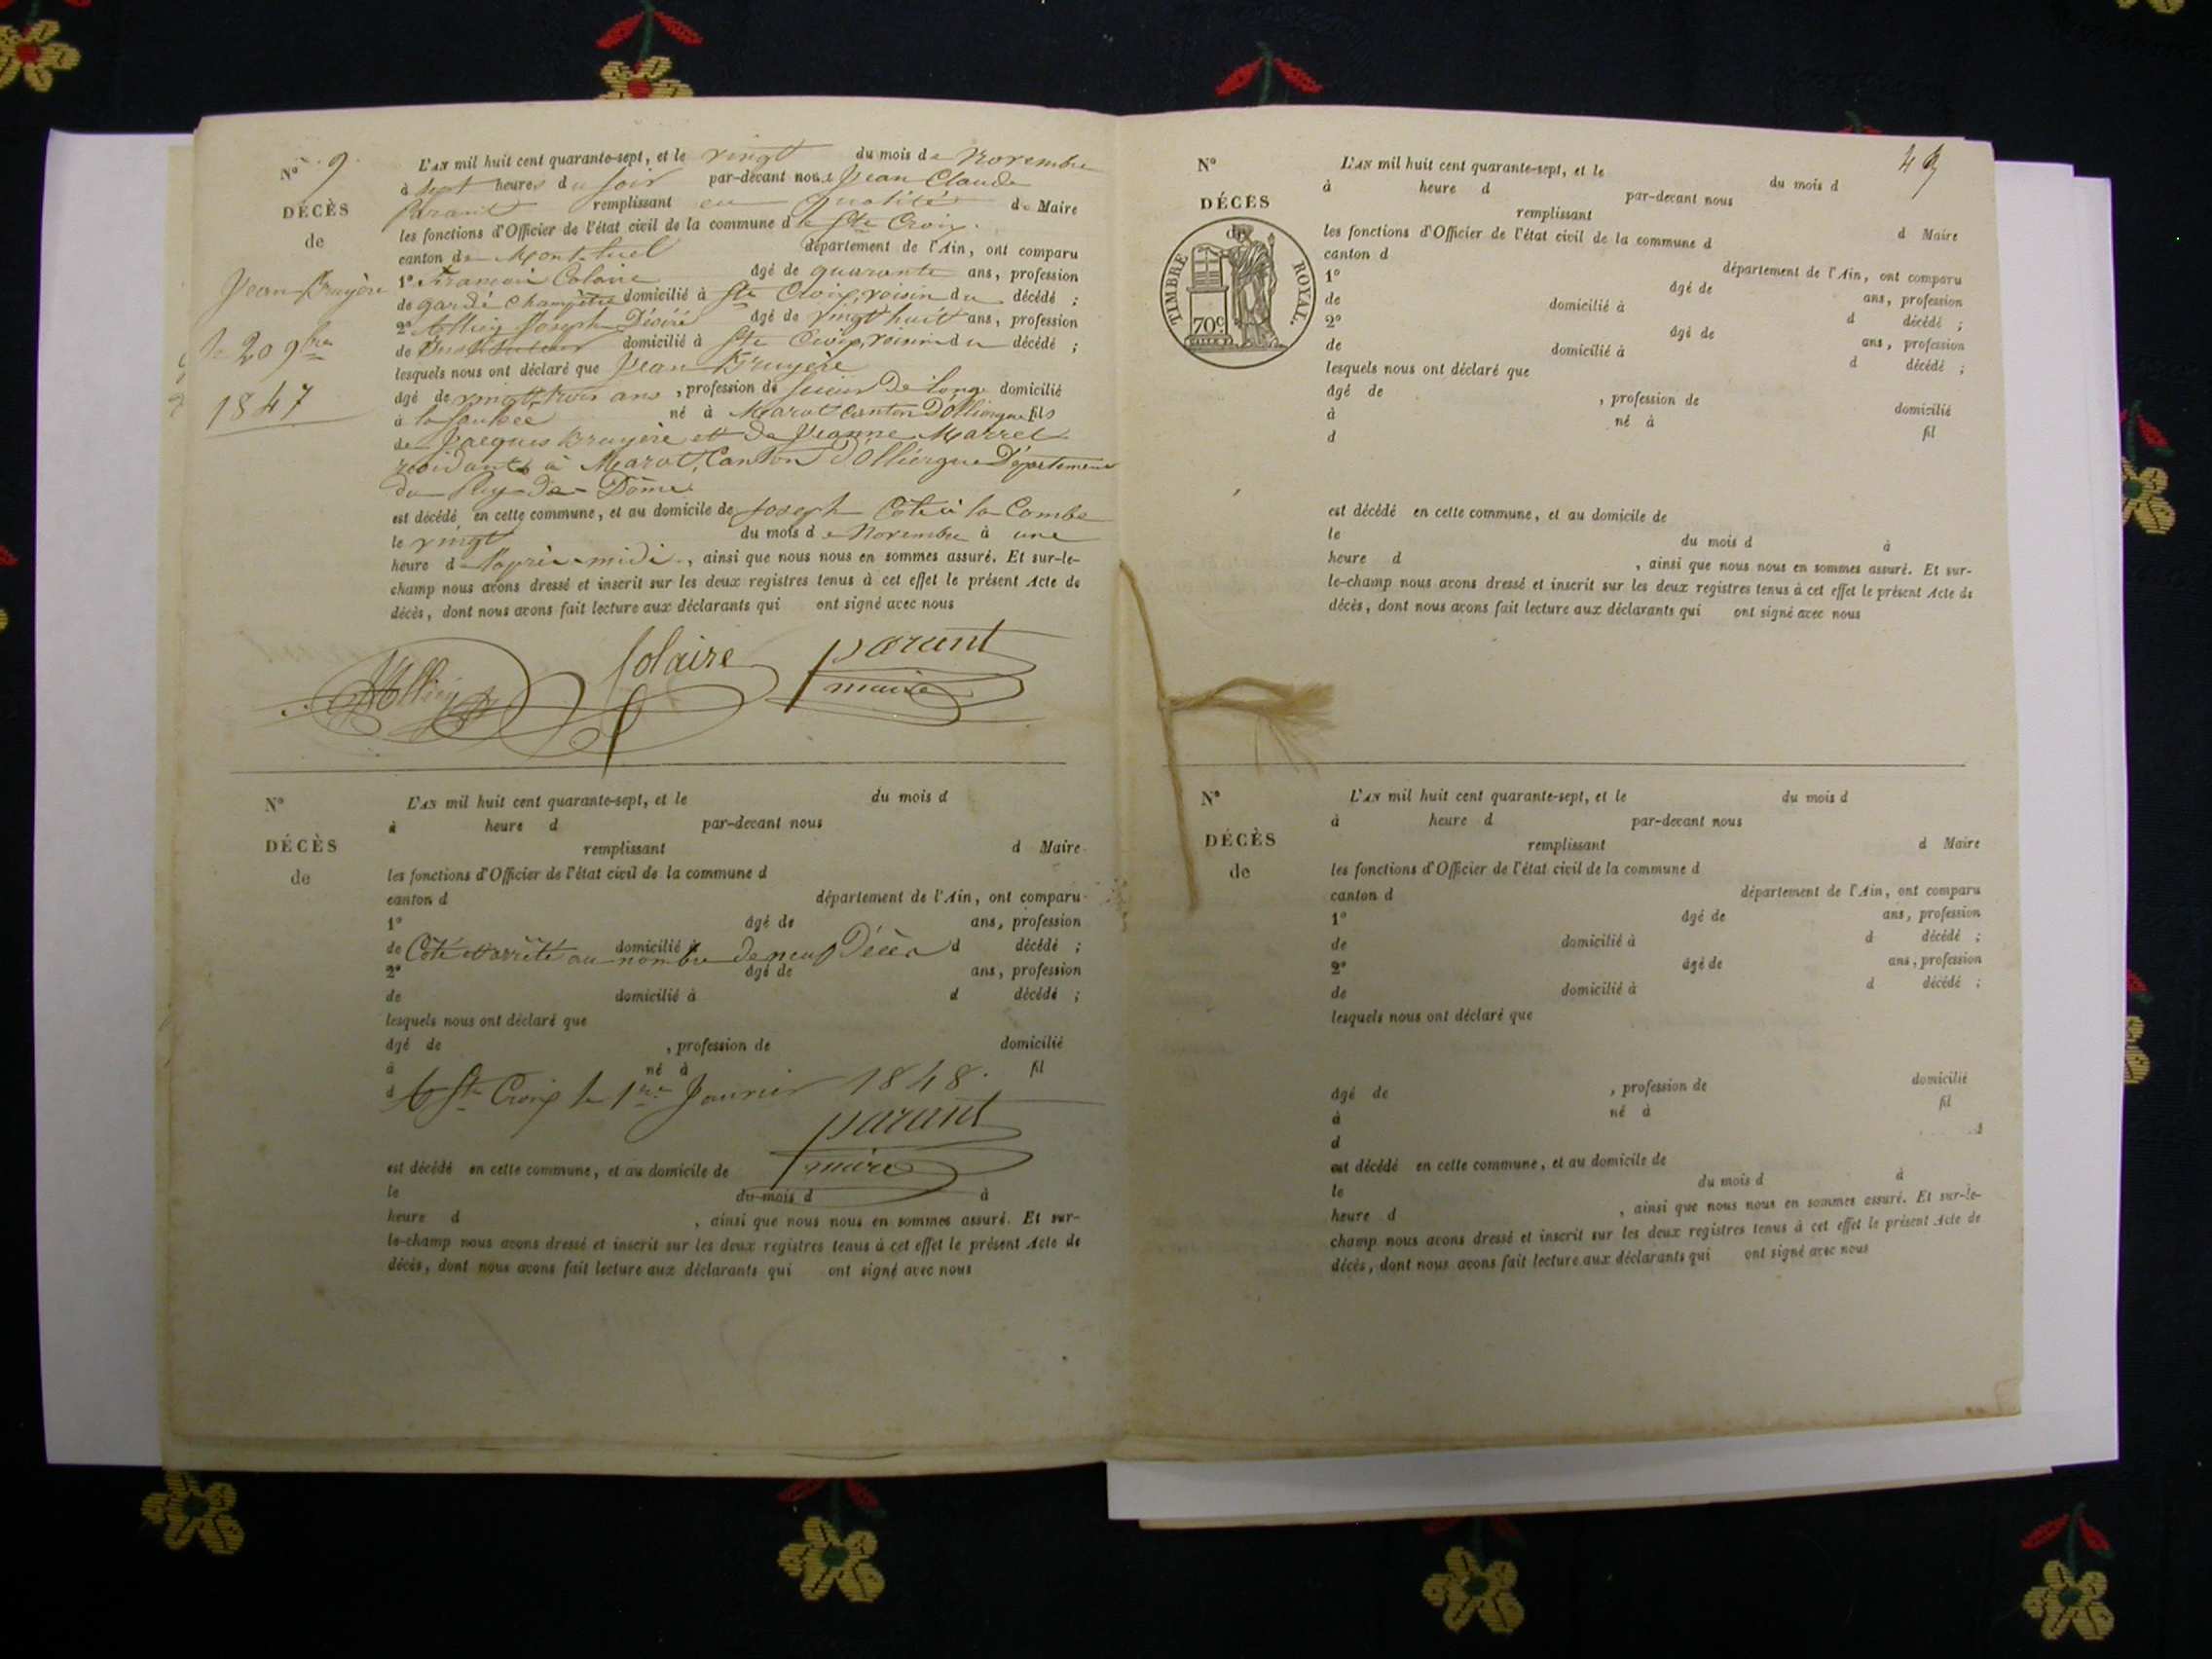 N° 9.
DÉCÈS
de
Jean Bruyère
le 20 9bre
1847
L'AN mil huit cent quarante-sept, et le vingt du mois de Novembre
à sept heures du soir par-devant nous Jean Claude
Parant remplissant en qualité de Maire
les fonctions d'Officier de l'état civil de la commune de Ste Croix
canton de Montluel département de l'Ain, ont comparu
1° François Colaire âgé de quarante ans, profession
de garde champêtre domicilié à Ste Croix, voisin du décédé ;
2° Joseph Désiré âgé de vingt huit ans, profession
de Instituteur domicilié à Ste Croix, voisin du décédé ;
lesquels nous ont déclaré que Jean Bruyère
âgé de vingt trois ans, profession de scieur de long domicilié
à né à Marat Canton D'Olliergue fils
de Jacques Bruyère et de Jeanne Marret
résidants à Marat, Canton d'Olliergue Département
du Puy-de-Dôme
est décédé en cette commune, et au domicile de Joseph Côte à la Combe
le vingt du mois de Novembre à une
heure de l'après-midi, ainsi que nous nous en sommes assuré. Et sur-le-
champ nous avons dressé et inscrit sur les deux registres tenus à cet effet le présent Acte de
décès, dont nous avons fait lecture aux déclarants qui ont signé avec nous
Colaire parant
maire
N°
DÉCÈS
de
L'AN mil huit cent quarante-sept, et le du mois d
à heure d par-devant nous
remplissant d Maire
les fonctions d'Officier de l'état civil de la commune d
canton d département de l'Ain, ont comparu
1° âgé de ans, profession
de domicilié à d décédé ;
Coté et arrêté au nombre de neuf Décès
2° âgé de ans, profession
de domicilié à d décédé ;
lesquels nous ont déclaré que
âgé de , profession de domicilié
à né à fil
d
A Ste Croix le 1er Janvier 1848.
parant
maire
est décédé en cette commune, et au domicile de
le du mois d à
heure d , ainsi que nous nous en sommes assuré. Et sur-
le-champ nous avons dressé et inscrit sur les deux registres tenus à cet effet le présent Acte de
décès, dont nous avons fait lecture aux déclarants qui ont signé avec nous
N°
DÉCÈS
de
TIMBRE ROYAL.
70c
L'AN mil huit cent quarante-sept, et le du mois d
à heure d par-devant nous
remplissant d Maire
les fonctions d'Officier de l'état civil de la commune d
canton d département de l'Ain, ont comparu
1° âgé de ans, profession
de domicilié à d décédé ;
2° âgé de ans, profession
de domicilié à d décédé ;
lesquels nous ont déclaré que
âgé de , profession de domicilié
à né à fil
d
est décédé en cette commune, et au domicile de
le du mois d à
heure d , ainsi que nous nous en sommes assuré. Et sur-
le-champ nous avons dressé et inscrit sur les deux registres tenus à cet effet le présent Acte de
décès, dont nous avons fait lecture aux déclarants qui ont signé avec nous
N°
DÉCÈS
de
L'AN mil huit cent quarante-sept, et le du mois d
à heure d par-devant nous
remplissant d Maire
les fonctions d'Officier de l'état civil de la commune d
canton d département de l'Ain, ont comparu
1° âgé de ans, profession
de domicilié à d décédé ;
2° âgé de ans, profession
de domicilié à d décédé ;
lesquels nous ont déclaré que
âgé de , profession de domicilié
à né à fil
d
est décédé en cette commune, et au domicile de
le du mois d à
heure d , ainsi que nous nous en sommes assuré. Et sur-le-
champ nous avons dressé et inscrit sur les deux registres tenus à cet effet le présent Acte de
décès, dont nous avons fait lecture aux déclarants qui ont signé avec nous